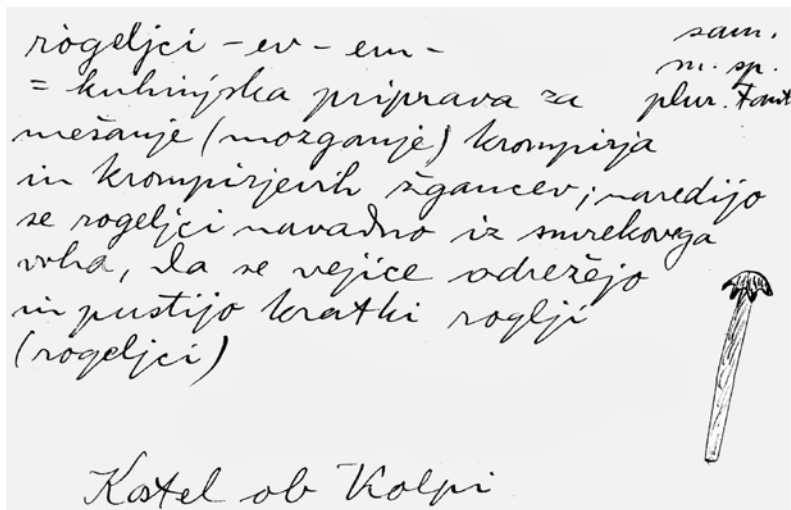 rogeljci – ev – em –
sam.
m. sp.
= kuhinjska priprava za plur. tant
mešanje (mozganje) krompirja
in krompirjevih žgancev; naredijo
se rogeljci navadno iz smrekovega
vrha, da se vejice odrežejo
in pustijo kratki roglji
(rogeljci)
Kostel ob Kolpi